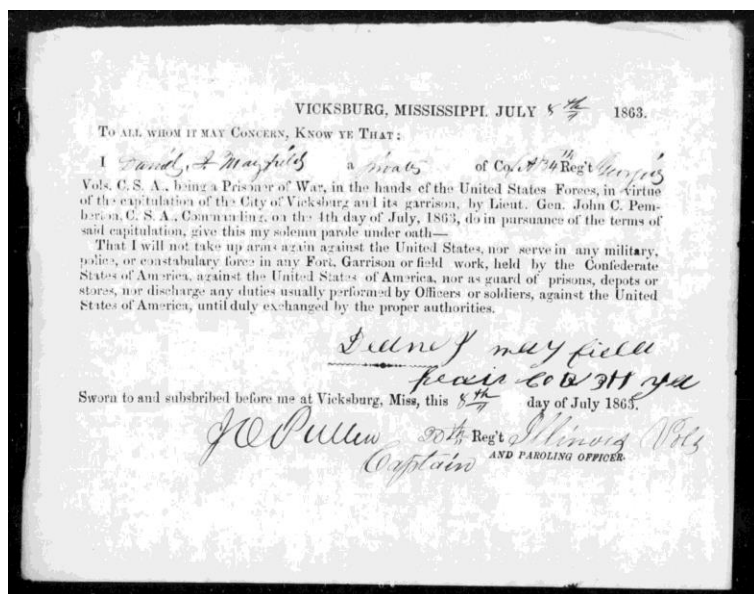 VICKSBURG, MISSISSIPPI. JULY 8th 1863.
TO ALL WHOM IT MAY CONCERN, KNOW YE THAT:
I David J Mayfield a private of Co. A 34th Reg't Georgia
Vols. C. S. A., being a Prisoner of War, in the hands of the United States Forces, in virtue
of the capitulation of the City of Vicksburg and its garrison, by Lieut. Gen. John C. Pem-
berton, C. S. A., Commanding, on the 4th day of July, 1863, do in pursuance of the terms of
said capitulation, give this my solemn parole under oath—
That I will not take up arms again against the United States, nor serve in any military,
police, or constabulary force in any Fort, Garrison or field work, held by the Confederate
States of America, against the United States of America, nor as guard of prisons, depots or
stores, nor discharge any duties usually performed by Officers or soldiers, against the United
States of America, until duly exchanged by the proper authorities.
mayfield
Sworn to and subsbribed before me at Vicksburg, Miss, this 8th day of July 1863.
J O Pullen 20th Reg't Illinois Vols
Captain AND PAROLING OFFICER.